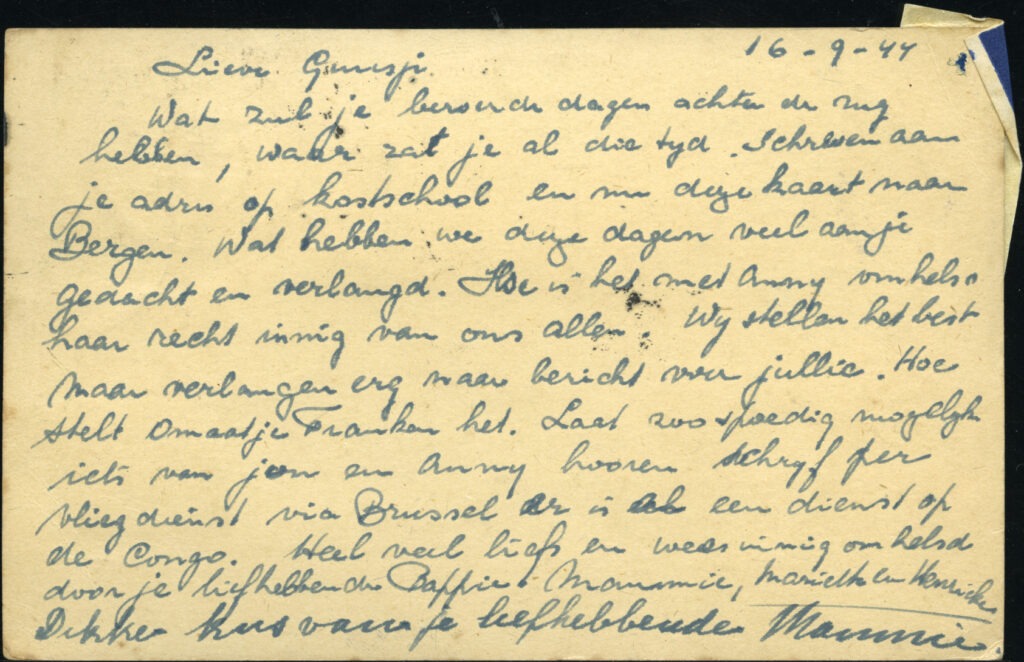 16-9-44
Lieve Guusje
Wat zul je beroerde dagen achter de rug
hebben, waar zat je al die tyd. Schreven aan
je adres op kostschool en nu deze kaart naar
Bergen. Wat hebben we deze dagen veel aan je
gedacht en verlangd. Hoe is het met Anny omhels
haar recht innig van ons allen. Wy stellen het best
maar verlangen erg naar bericht van jullie. Hoe
stelt Omaatje Franken het. Laat zoo spoedig mogelyk
iets van jou en Anny hooren schryf per
vliegdienst via Brussel er is al een dienst op
de Congo. Heel veel liefs en wees innig omhelsd
door je liefhebbende Pappie Mammie, Mariette en
Dikke kus van je liefhebbende Mammie.